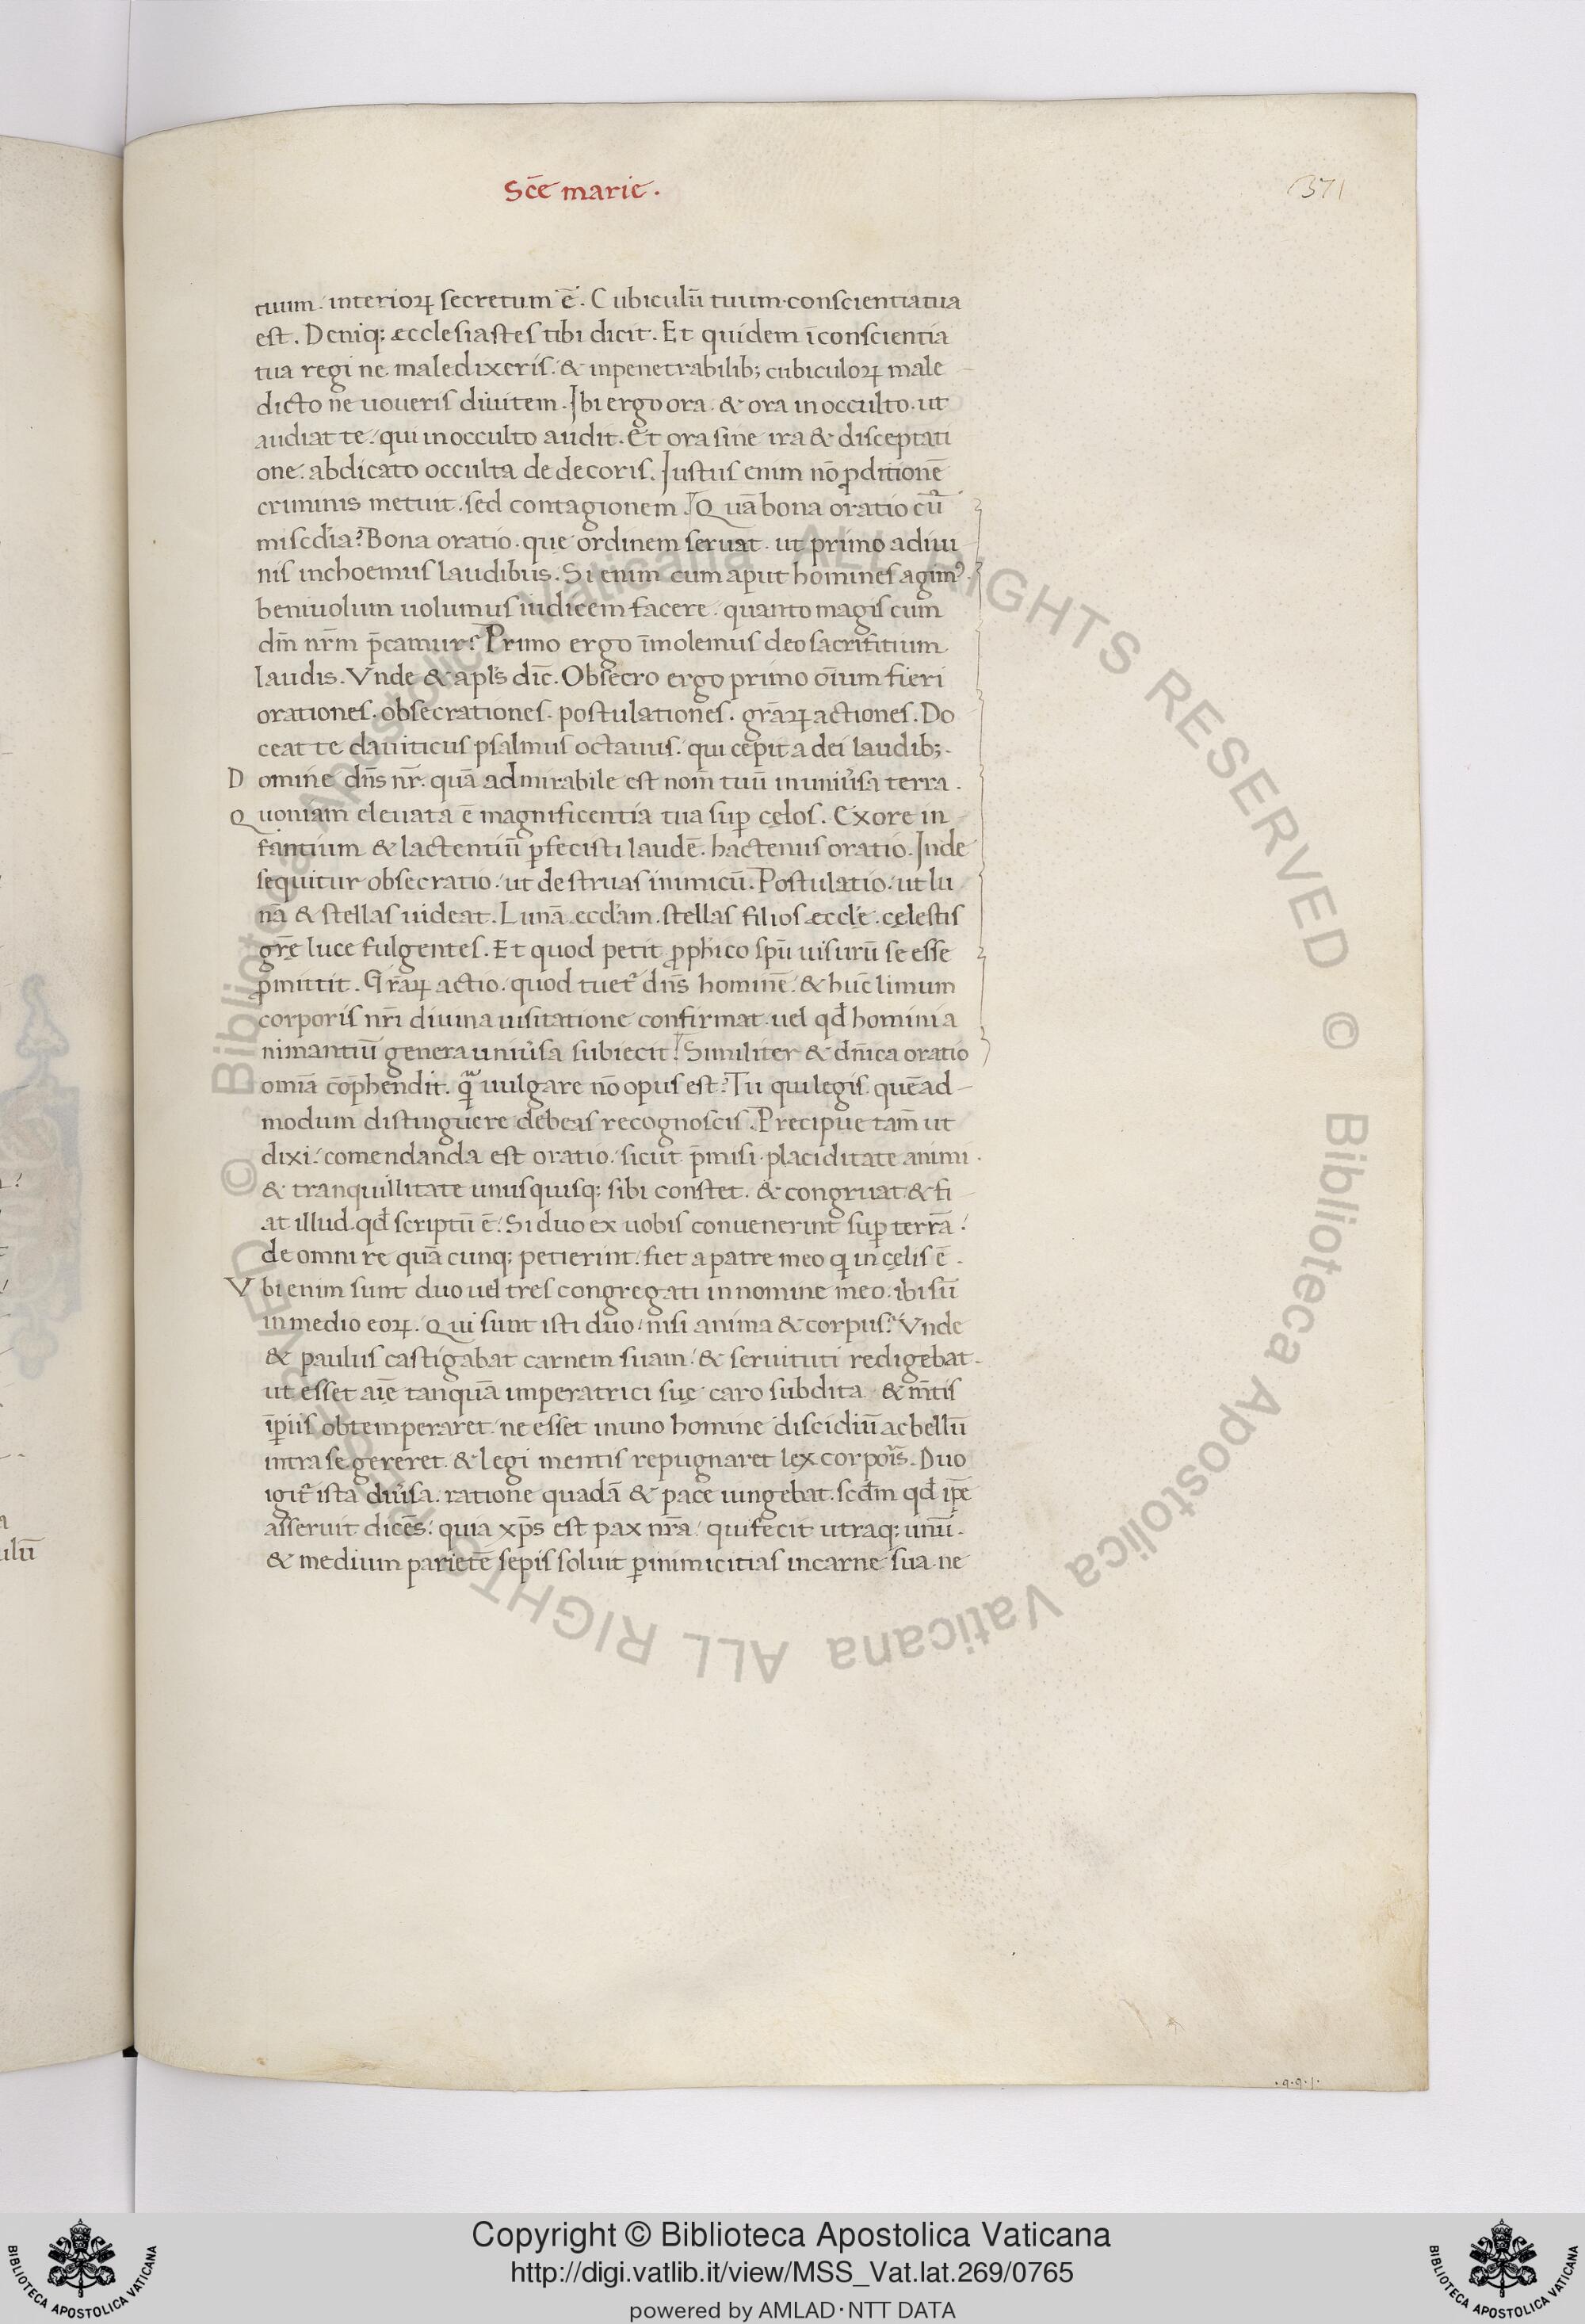 Sc̄e marie.
371
tuum. interioꝝ secretum ē. Cubiculū tuum. conscientia tua
est. Deniq; æcclesiastes tibi dicit. Et quidem ī conscientia
tua regi ne maledixeris. & inpenetrabilib; cubiculoꝝ male
dicto ne uoueris diuitem. Ibi ergo ora. & ora in occulto. ut
audiat te. qui in occulto audit. Et ora sine ira & disceptati
one. abdicato occulta dedecoris. Iustus enim nō ꝓditionē
criminis metuit. sed contagionem. Quā bona oratio cū
miscdia? Bona oratio. que ordinem seruat. ut primo adiuu
nis inchoemus laudibus. Si enim cum aput homines agimꝰ.
beniuolum uolumus iudicem facere. quanto magis cum
dn̄m nr̄m p̄camur? Primo ergo īmolemus deo sacrifitium
laudis. Vnde & apl's dic̄. Obsecro ergo primo oīum fieri
orationes. obsecrationes. postulationes. gr̄aꝝ actiones. Do
ceat te dauiticus psalmus octauus. qui cepit a dei laudib;.
Domine dn̄s nr̄. quā admirabile est nom̄ tuū in uniu'sa terra.
Quoniam eleuata ē magnificentia tua suꝑ cęlos. Ex ore in
fantium & lactentiū ꝑfecisti laudē. hactenus oratio. Inde
sequitur obsecratio. ut destruas inimicū. Postulatio. ut lu
nā & stellas uideat. Lunā ecclam. stellas filios æccle. cęlestis
gr̄ę luce fulgentes. Et quod petit ꝓphico sp̄u uisurū se esse
ꝓmittit. Gr̄aꝝ actio. quod tuet' dn̄s hominē. & huc̄ limum
corporis nr̄i diuina uisitatione confirmat. uel qđ homini a
nimantiū genera uniu'sa subiecit. Similiter & dn̄ica oratio
omīa cōp̄hendit. quā uulgare nō opus est? Tu qui legis. quēad
modum distinguere debeas recognoscis. Precipue tam̄ ut
dixi. comendanda est oratio. sicut p̄misi. placiditate animi.
& tranquillitate unusquisq; sibi constet. & congruat. & fi
at illud. qđ scriptū ē. Si duo ex uobis conuenerint suꝑ terrā.
de omni re quācunq; petierint. fiet a patre meo qi in cęlis ē.
Vbi enim sunt duo uel tres congregati in nomine meo. ibi sū
in medio eoꝝ. Qui sunt isti duo. nisi anima & corpus? Vnde
& paulus castigabat carnem suam. & seruituti redigebat.
ut esset aīę tanquā imperatrici suę caro subdita. & m̄tis
īperiis obtemperaret. ne esset in uno homine discidiū ac bellū
intra se gereret. & legi mentis repugnaret lex corporis. Duo
igit' ista diu'sa. ratione quadā & pace iungebat. scđm qđ ip̄e
asseruit dicēs. quia xp̄s est pax nr̄a. qui fecit utraq; unū.
& medium parietē sepis soluit ꝑ inimicitias in carne sua. ne
© Biblioteca Apostolica Vaticana ALL RIGHTS RESERVED
© Biblioteca Apostolica Vaticana ALL RIGHTS RESERVED
Copyright © Biblioteca Apostolica Vaticana
http://digi.vatlib.it/view/MSS_Vat.lat.269/0765
powered by AMLAD·NTT DATA
BIBLIOTECA APOSTOLICA VATICANA
BIBLIOTECA APOSTOLICA VATICANA